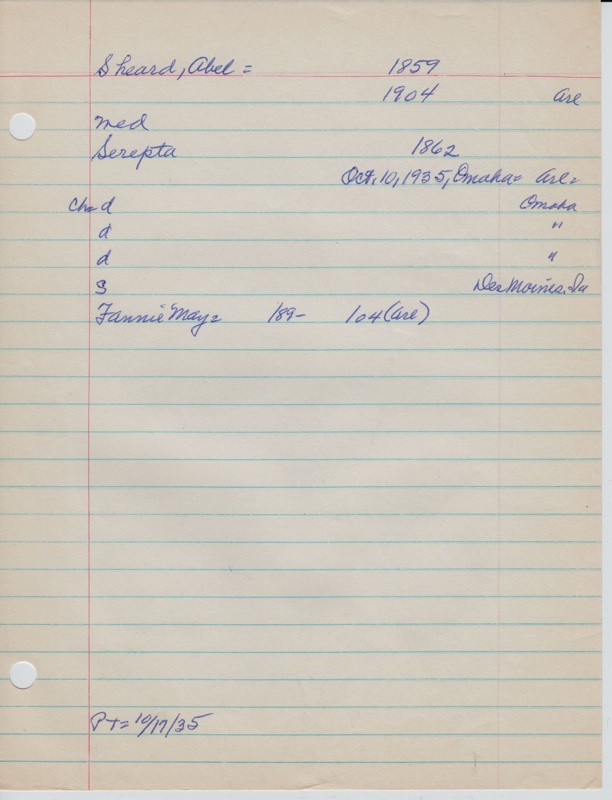 Sheard, Abel = 1859
1904 Are
med
Serepta 1862
Oct, 10, 1935, Omaha = Are =
Ch= d Omaha
d "
d "
s Des Moines. Ia
Fannie May = 189- 104 (are)
PT= 10/17/35